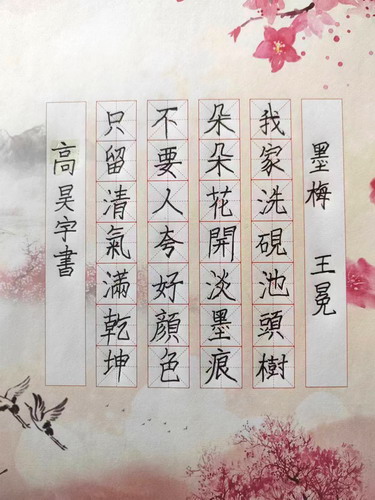 墨梅 王冕
我家洗硯池頭樹
朵朵花開淡墨痕
不要人夸好顔色
只留清氣滿乾坤
高昊宇書